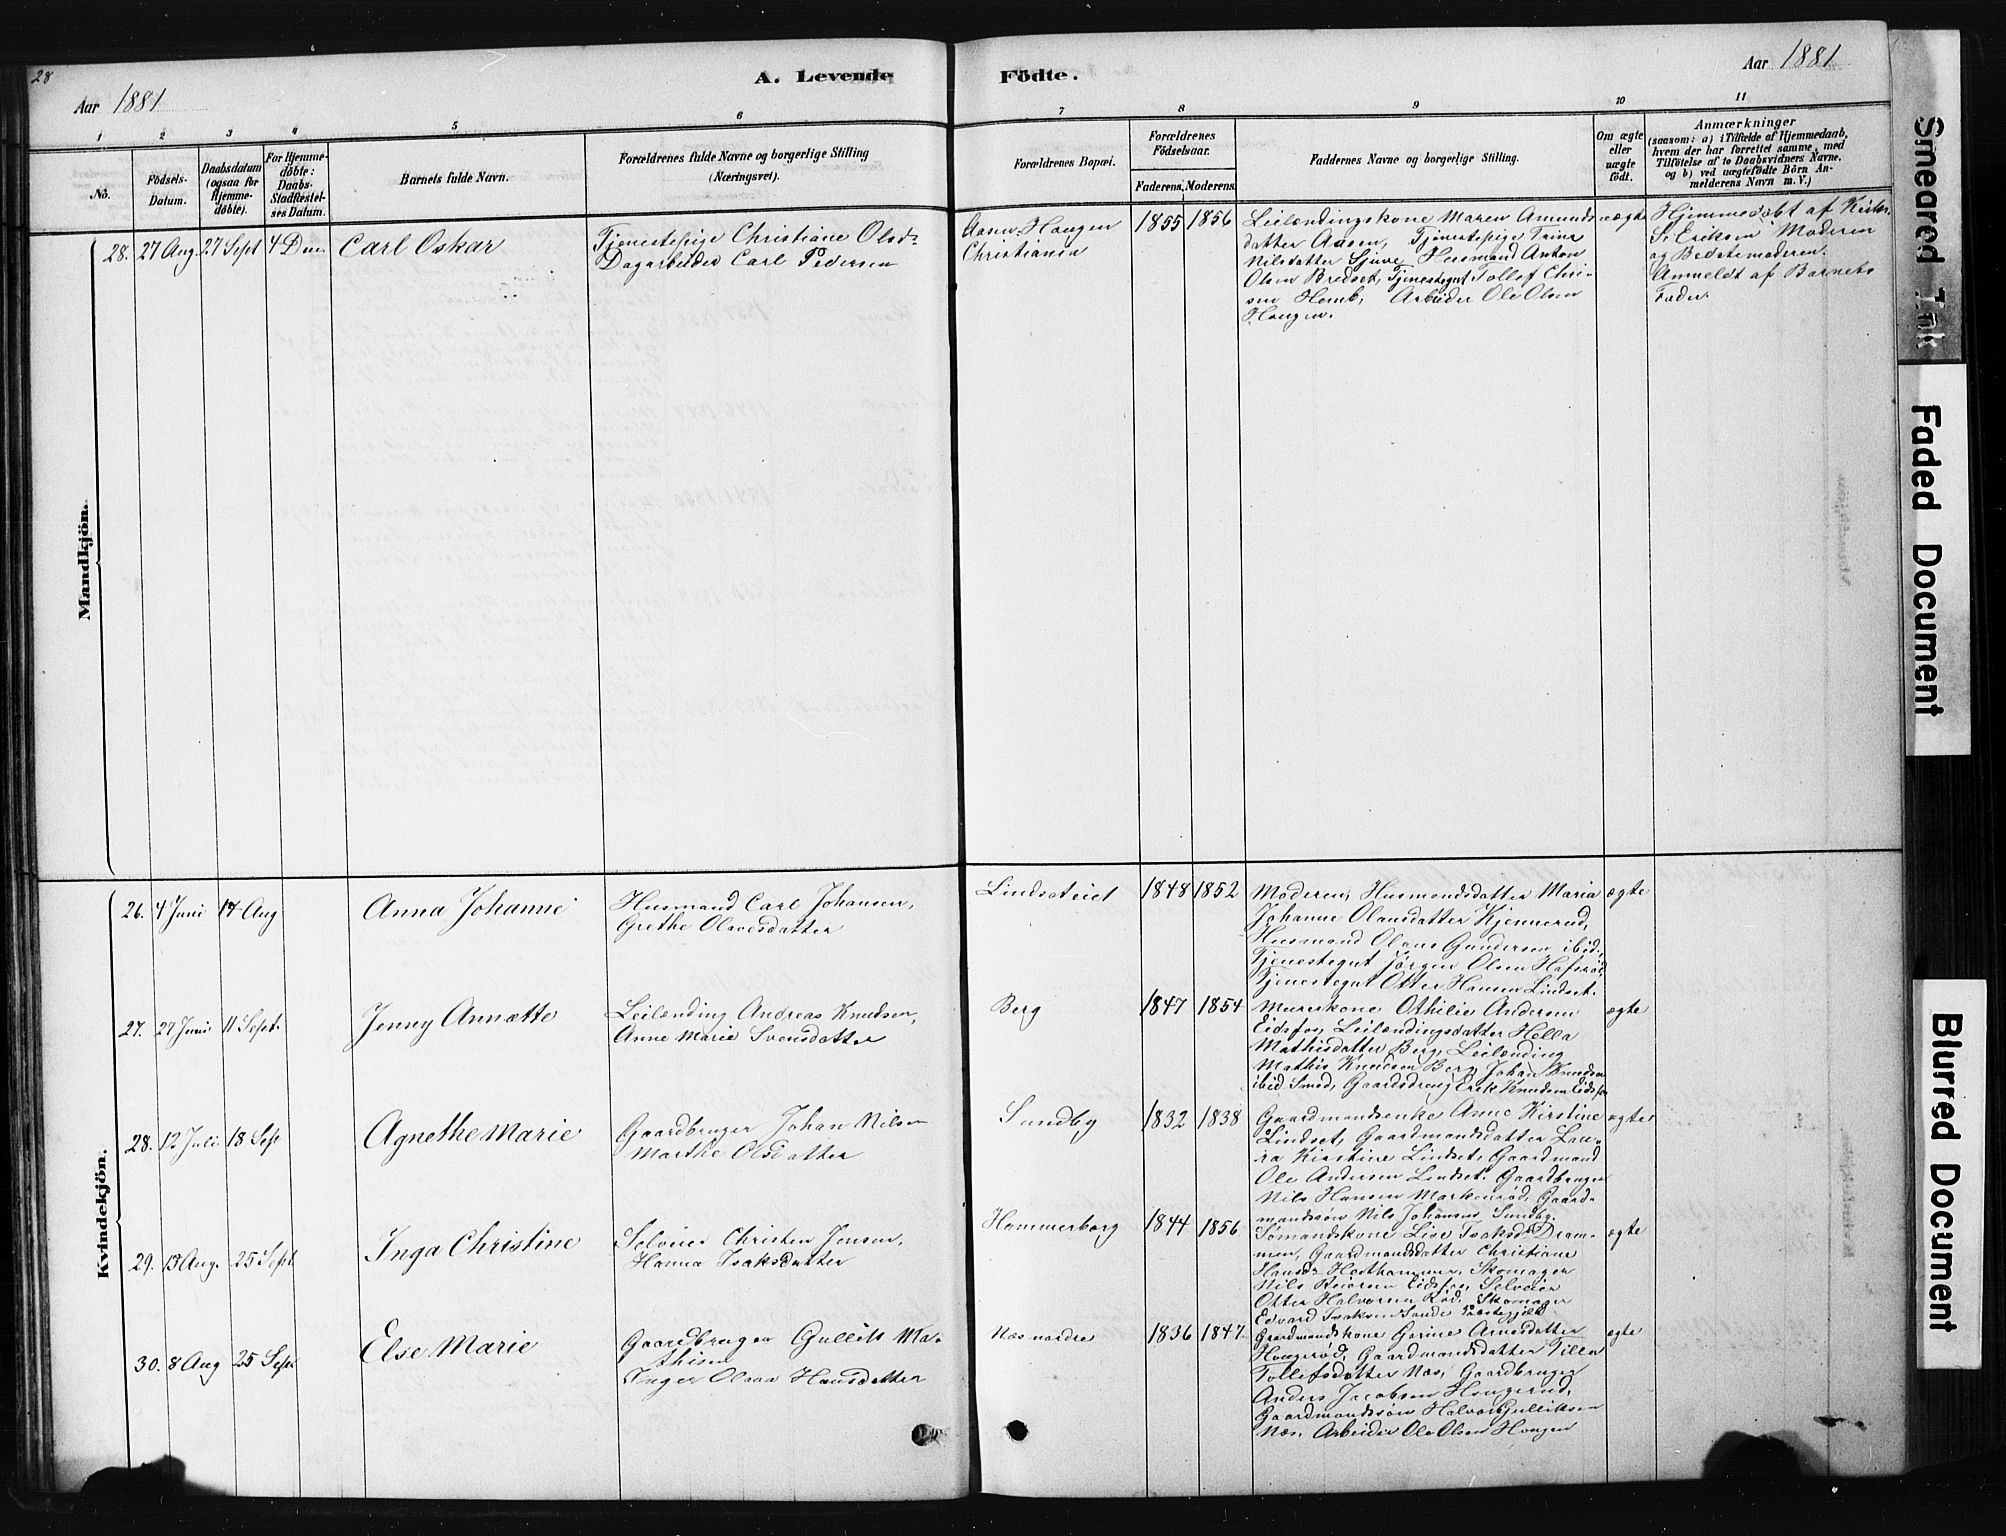 28
A. Levende Födte.
Aar 1881
Aar 1881
1 2 3 4 5 6 7 8 9 10 11
No.
Födsels-Datum.
Daabsdatum (ogsaa för Hjemme-döbte).
For Hjemme-döbte: Daabs-Stadfæstel-ses Datum.
Barnets fulde Navn.
Forældrenes fulde Navne og borgerlige Stilling
(Næringsvei).
Forældrenes Bopæl.
Forældrenes Födselsaar.
Faderens. Moderens.
Faddernes Navne og borgerlige Stilling.
Om ægte eller uægte födt.
Anmærkninger
(saasom: a) i Tilfælde af Hjemmedaab,
hvem der har forrettet samme, med
Tilföielse af to Daabsvidners Navne.
og b) ved uægtefödte Börn An-
melderens Navn m. V.)
Mandkjön.
28. 27 Aug. 27 Sept 4 Dec Carl Oskar
Tjenestepige Christiane Olsd.
Dagarbeider Carl Pedersen
Aasen-Haugen
Christiania
1855 1856
Leilændingskone Maren Amunds
datter Aasen, Tjenestepige Trine
Nilsdatter Sjure Husmand Anton
Olsen Bredset, Tjenestegut Tollef Chri-
sen Hemb, Arbeider Ole Olsen
Haugen.
uægte
Hjemmedøbt af
S. Eriksen Moderen
og Bedstemoderen.
Anmeldt af Barnets
Fader.
Kvindekjön.
26. 4 Juni 14 Aug Anna Johanne
Husmand Carl Johansen,
Grethe Olavesdatter
Lindseteiet
1848 1852
Moderen, Husmandsdatter Maria
Johanne Olausdatter Kjennerud,
Husmand Olaus Gundersen ibid.,
Tjenestegut Jörgen Olsen Hafsröd,
Tjenestegut Otter Hansen Lindset.
ægte
27. 27 Juni 11 Sept. Jenny Annætte
Leilænding Andreas Knudsen,
Anne Marie Svensdatter
Berg
1847 1854
Murerkone Othilie Andersen
Eidsfos, Leilændingsdatter Hella
Mathisdatter Berg, Leilænding
Mathis Knudsen Berg, Johan Knudsen
ibid Smed, Gaardsdreng Erik Knudsen Eidsfos
ægte
28. 12 Juli 18 Sep Agnethe Marie
Gaardbruger Johan Nilsen
Marthe Olsdatter
Sundby
1832 1838
Gaardmandsenke Anne Kirstine
Lindset, Gaardmandsdatter Lau-
ra Kirstine Lindset, Gaardmand
Ole Andersen Lindset, Gaardbruger
Nils Hansen Markeröd, Gaard-
mandssön Nils Johansen Sundby.
ægte
29. 13 Aug. 25 Sept Inga Christine
Selveier Christen Jensen,
Hanna Isaksdatter
Hammerborg
1844 1856
Sømandskone Lise Isaksd. Dram-
men, Gaardmandsdatter Christiane
Hansd. Hasthammer, Skomager
Nils Eidsfos, Selveier
Otter Halvorsen Röd, Skomager
Edvard Isaksen Sande Præstegjeld
ægte
30. 8 Aug 25 Sept Else Marie
Gaardbruger Gullik Ma-
thisen
Inger Olava Hansdatter
Næs nordre
1836 1847
Gaardmandskone Gorine Arnesdatter
Haugeröd, Gaardmandsdatter Tilla
Tollefsdatter Næs, Gaardbruger
Anders Jacobsen Haugerud,
Gaardmandssön Halvor Gulliksen
Næs, Arbeider Ole Olsen Haugen
ægte
Smeared Ink
Faded Document
Blurred Document